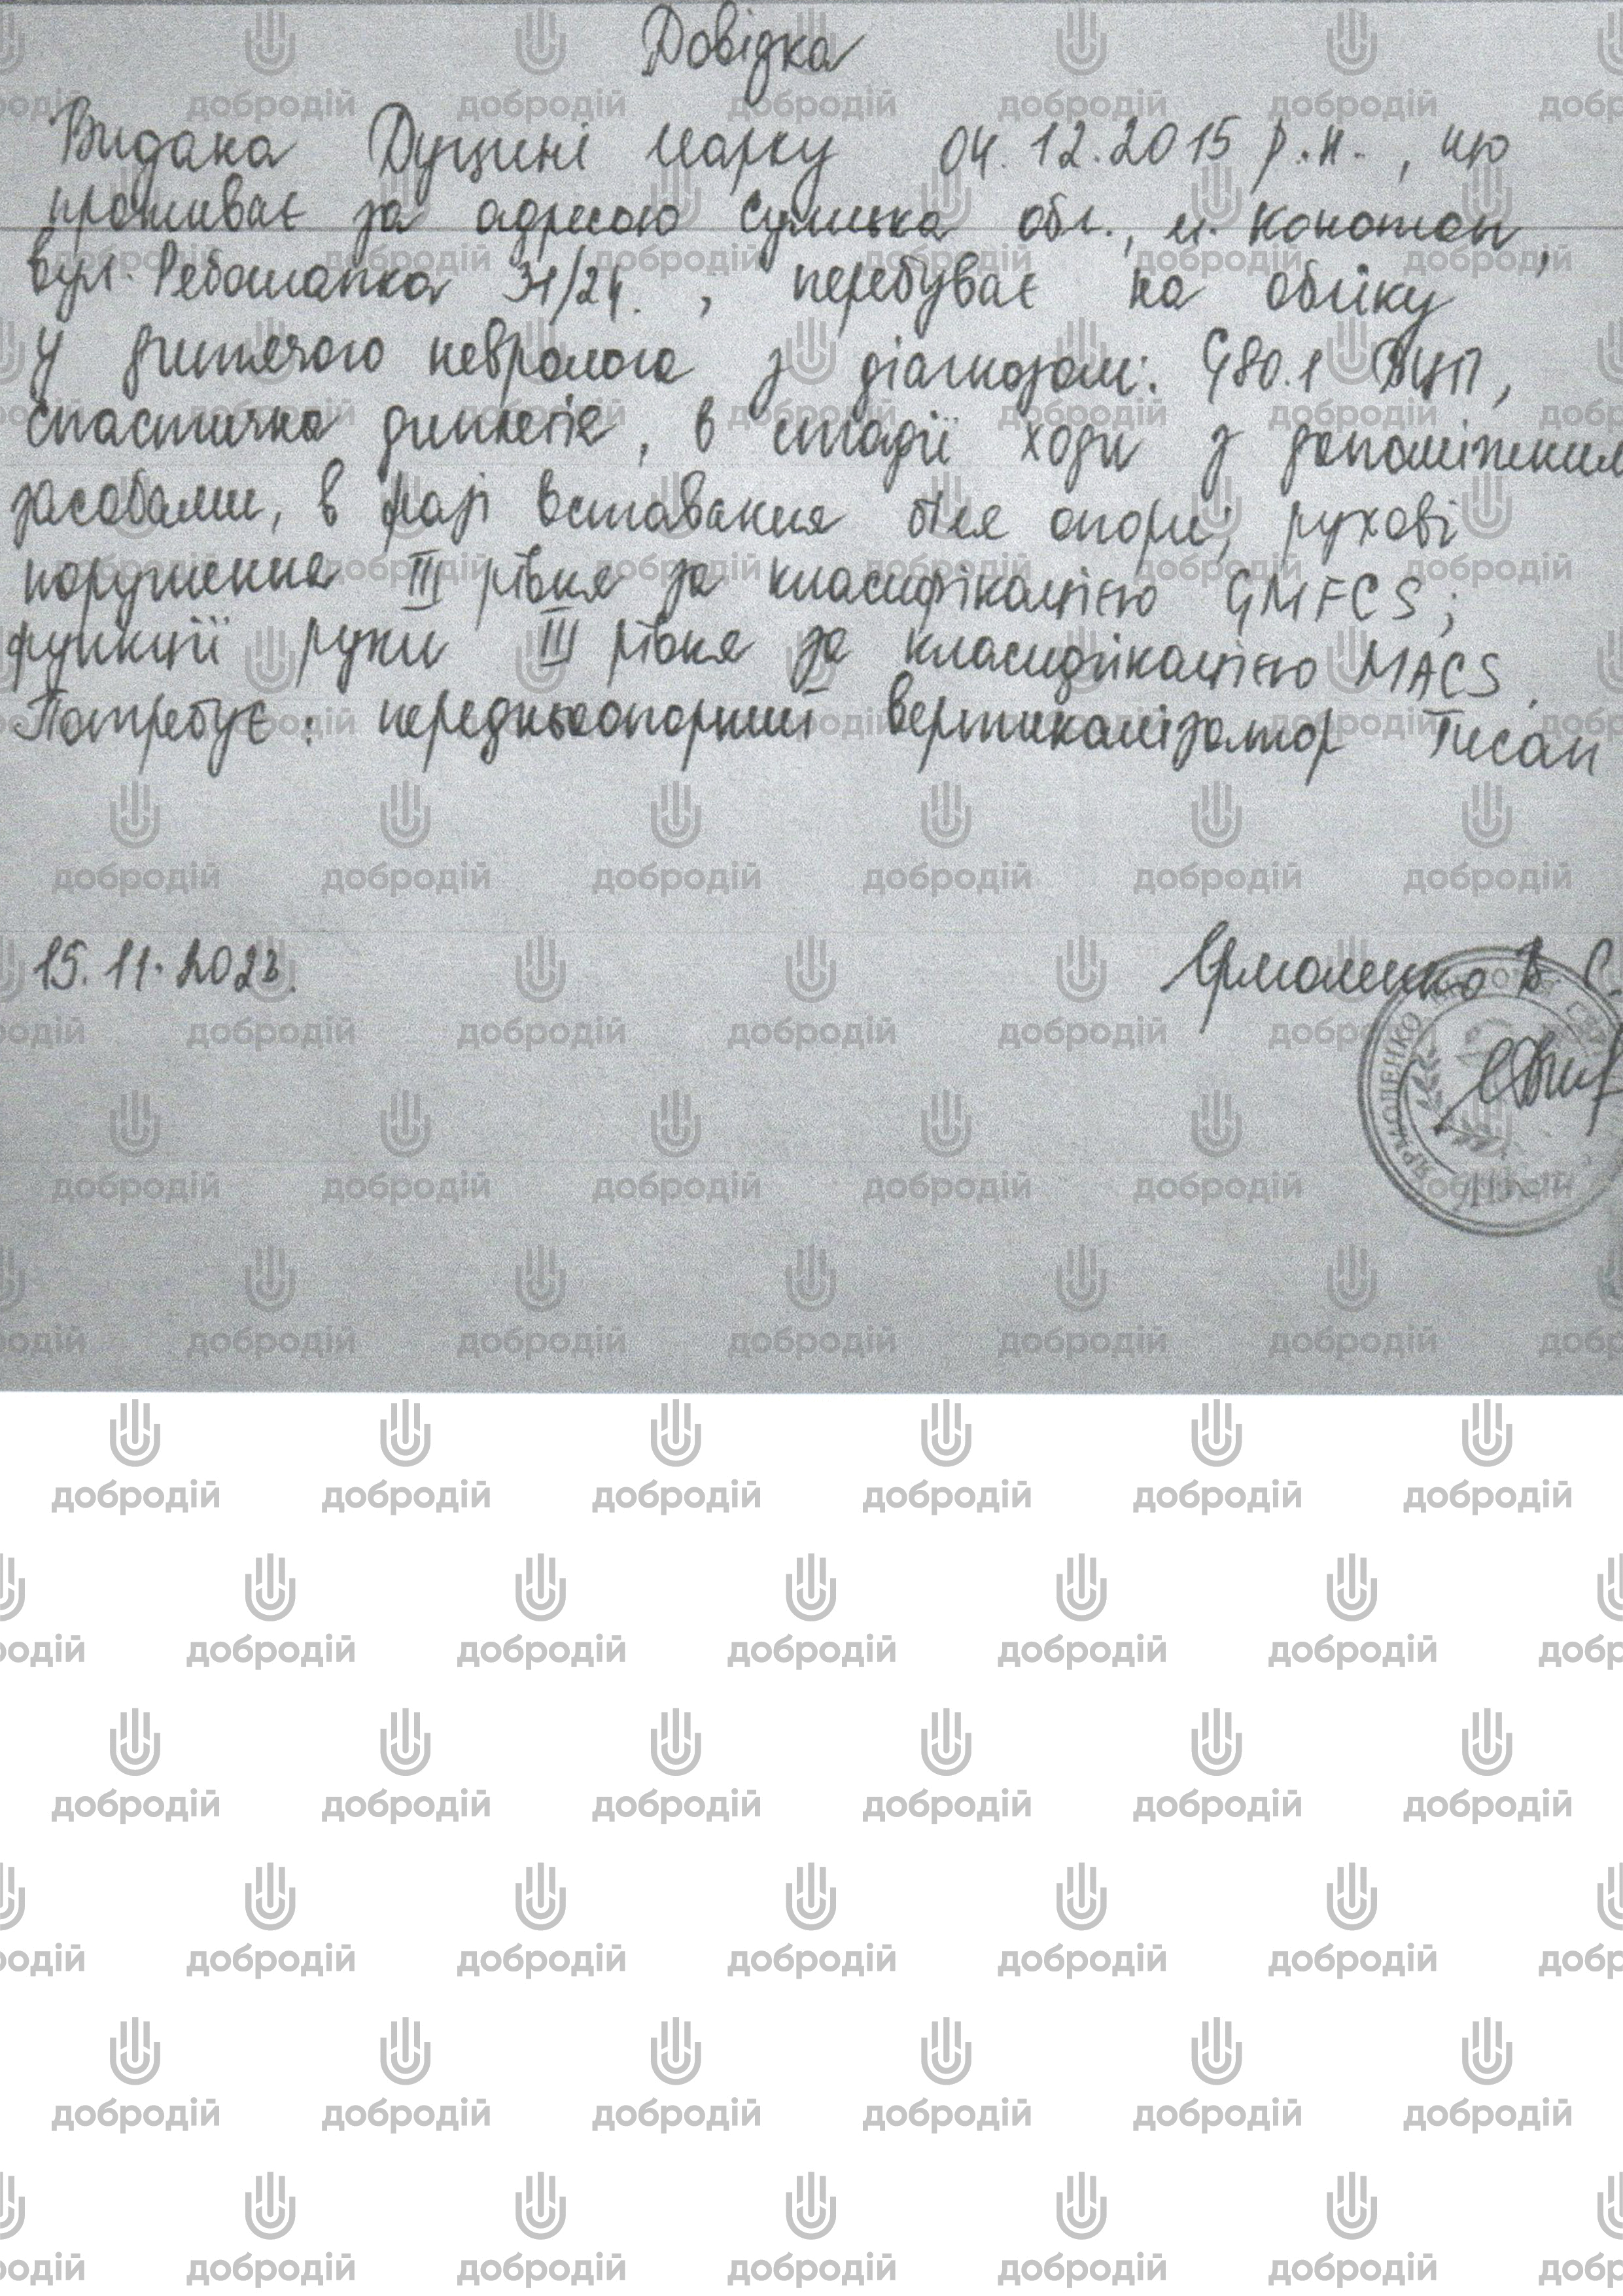 Довідка
Видана Дуцині Марку 04.12.2015 р.н., що
проживає за адресою Сумська обл., м. Конотоп,
вул. Ребошапка 31/24., перебуває на обліку
у дитячого невролога з діагнозом: G80.1 ДЦП,
спастична диплегія, в стадії ходи з допоміжним
засобами, в фазі вставання біля опори; рухові
порушення III рівня за класифікацією GMFCS;
функції руки III рівня за класифікацією MACS.
Потребує: передньоопорний вертикалізатор Тисан
15.11.2023.
Ярмоленко В С.
ЯРМОЛЕНКО
добродій